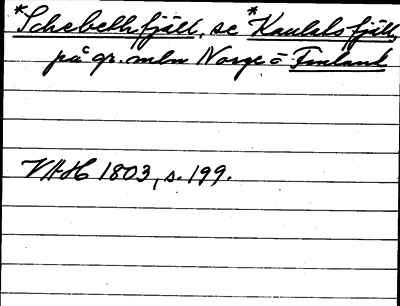 *Schebethfjäll, se *Kaulatsfjäll,
på gr. mln Norge o Finland
VAH 1803, s. 199.